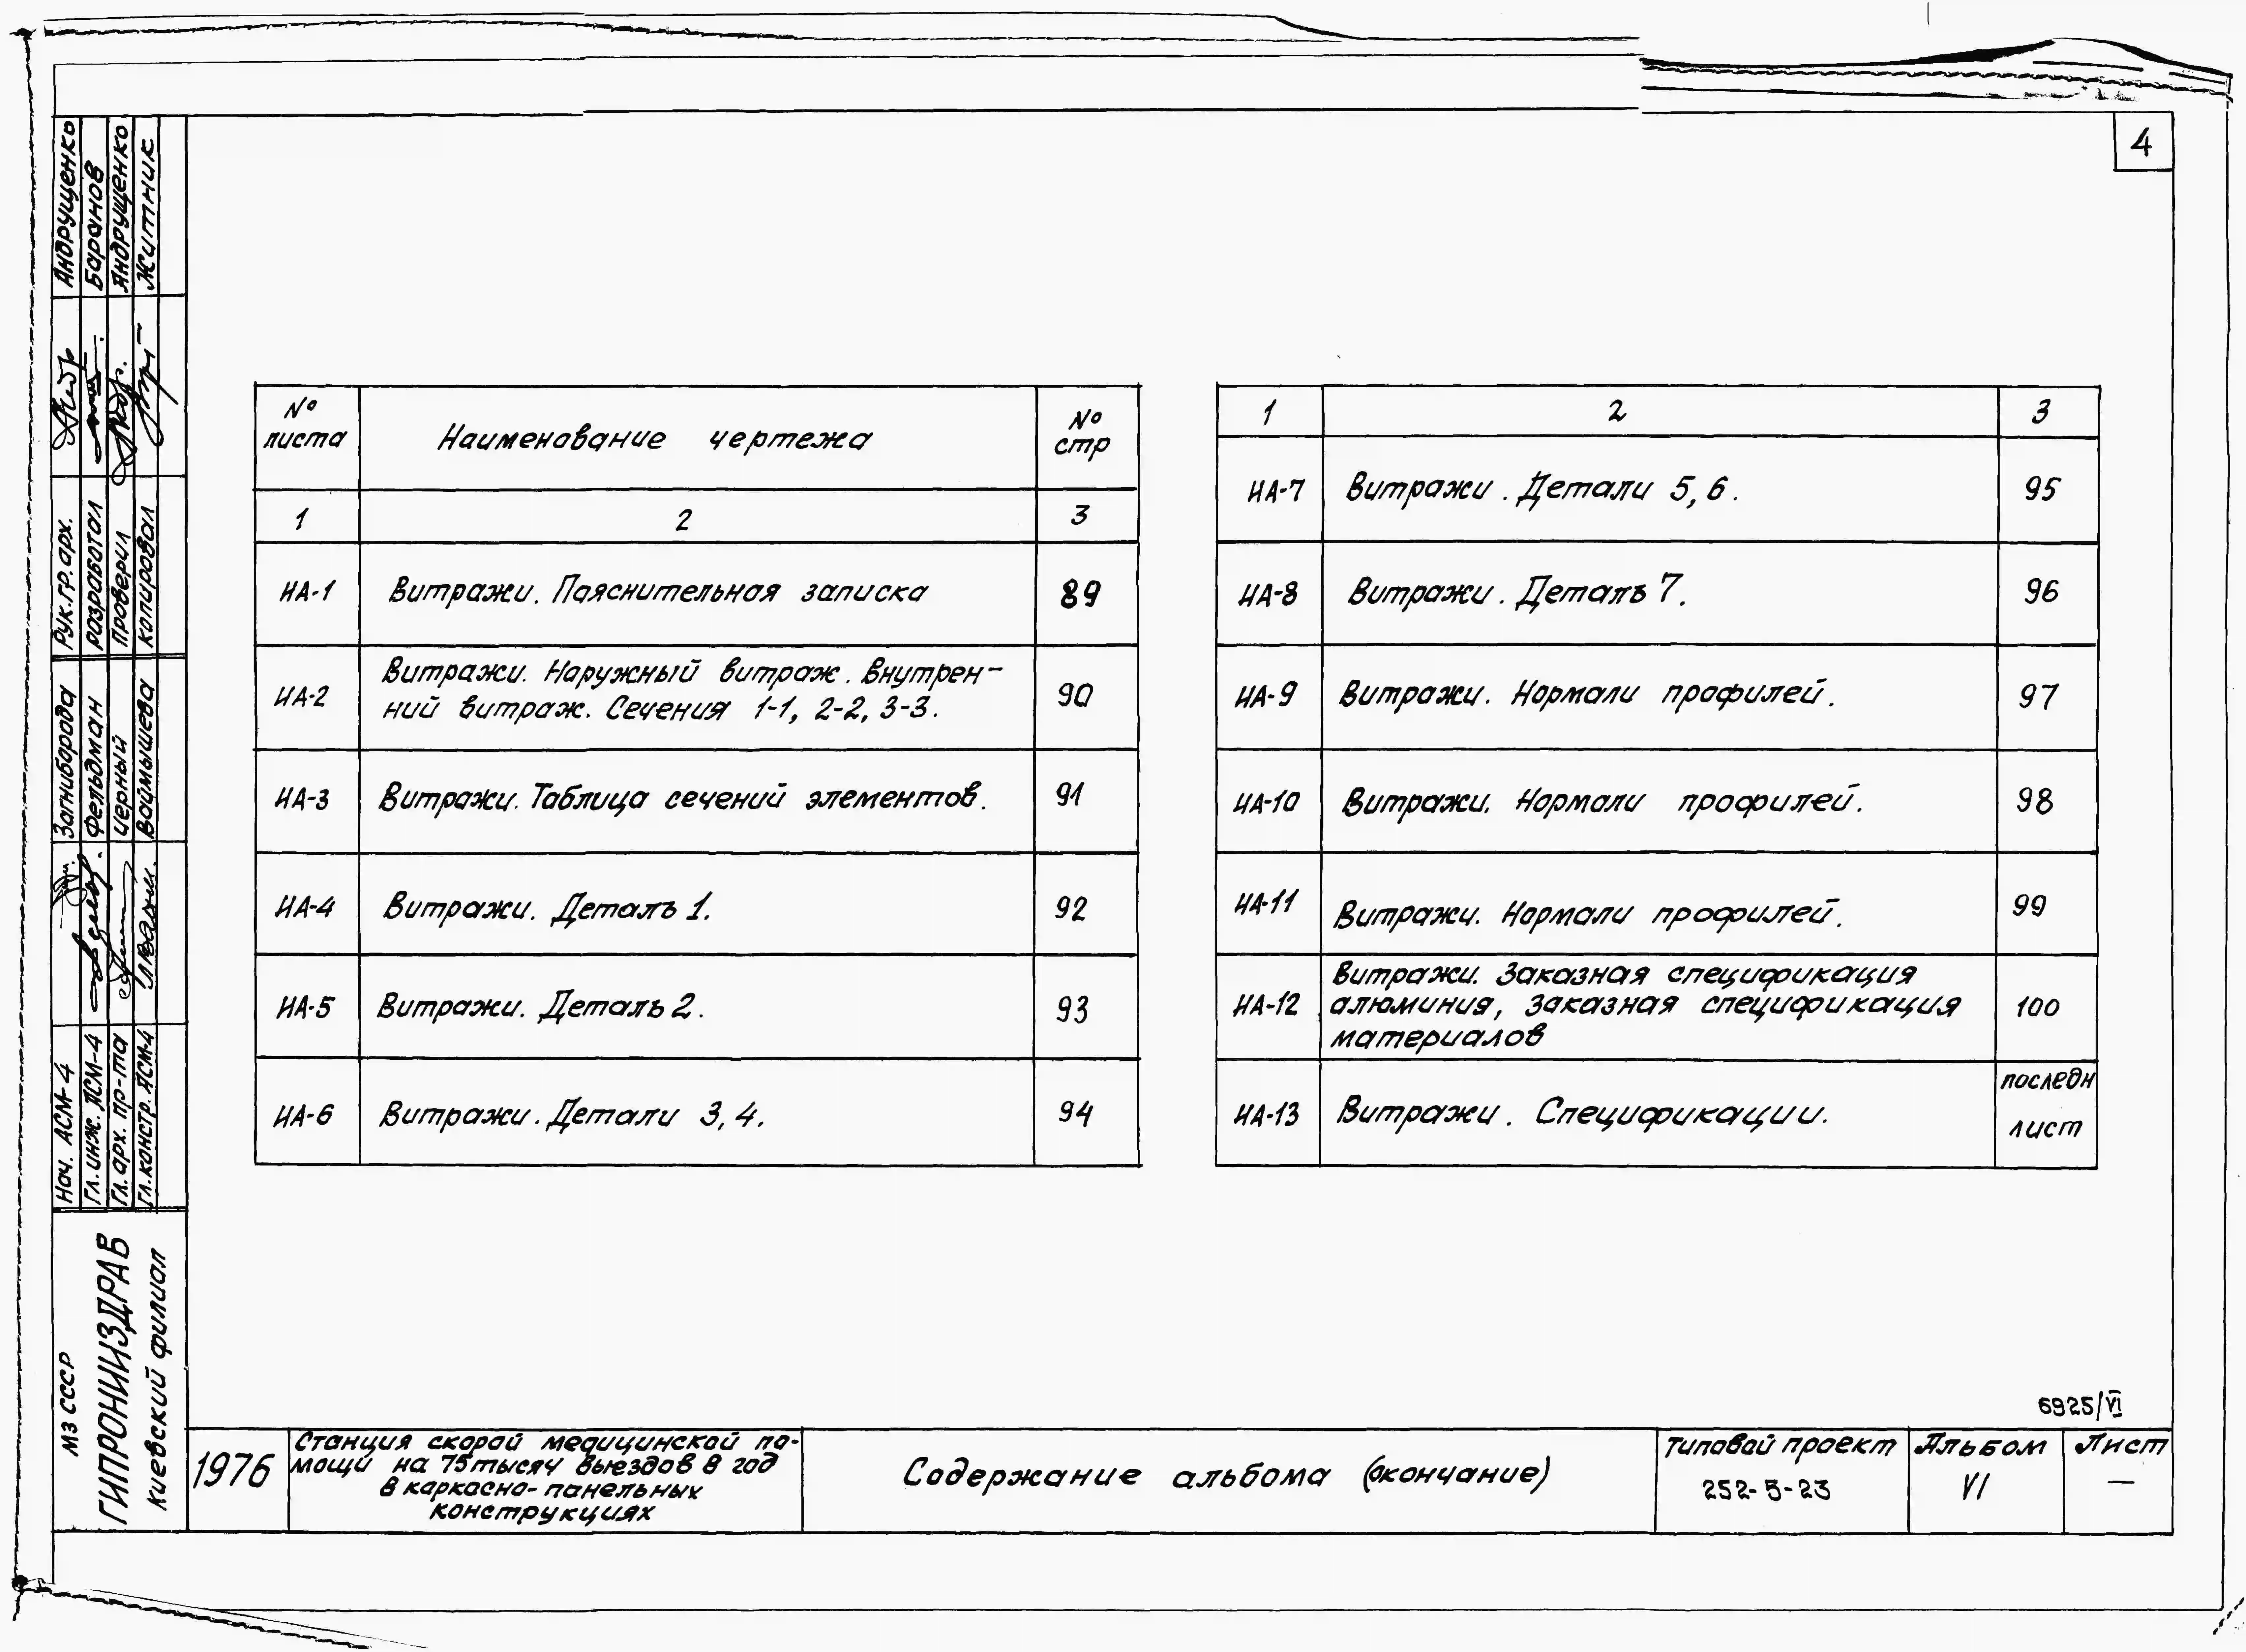 4
№ листа Наименование чертежа № стр
1 2 3
ИА-1 Витражи. Пояснительная записка 89
ИА-2 Витражи. Наружный витраж. Внутрен-
ний витраж. Сечения 1-1, 2-2, 3-3. 90
ИА-3 Витражи. Таблица сечений элементов. 91
ИА-4 Витражи. Деталь 1. 92
ИА-5 Витражи. Деталь 2. 93
ИА-6 Витражи. Детали 3, 4. 94
1 2 3
ИА-7 Витражи. Детали 5, 6. 95
ИА-8 Витражи. Деталь 7. 96
ИА-9 Витражи. Нормали профилей. 97
ИА-10 Витражи. Нормали профилей. 98
ИА-11 Витражи. Нормали профилей. 99
ИА-12 Витражи. Заказная спецификация
алюминия, заказная спецификация
материалов 100
ИА-13 Витражи. Спецификации. последн
лист
Нач. АСМ-4 Загниборода Рук.гр.арх. Андрущенко
Гл.инж. АСМ-4 Фельдман разработал Баранов
Гл.арх. пр-та Черный проверил Андрущенко
Гл.констр. АСМ-4 Ваймышева копировал Житник
МЗ СССР
ГИПРОНИИЗДРАВ
Киевский филиал
6925/VI
1976
Станция скорой медицинской по-
мощи на 75 тысяч выездов в год
в каркасно-панельных
конструкциях
Содержание альбома (окончание)
Типовой проект
252-5-23
Альбом
VI
Лист
—